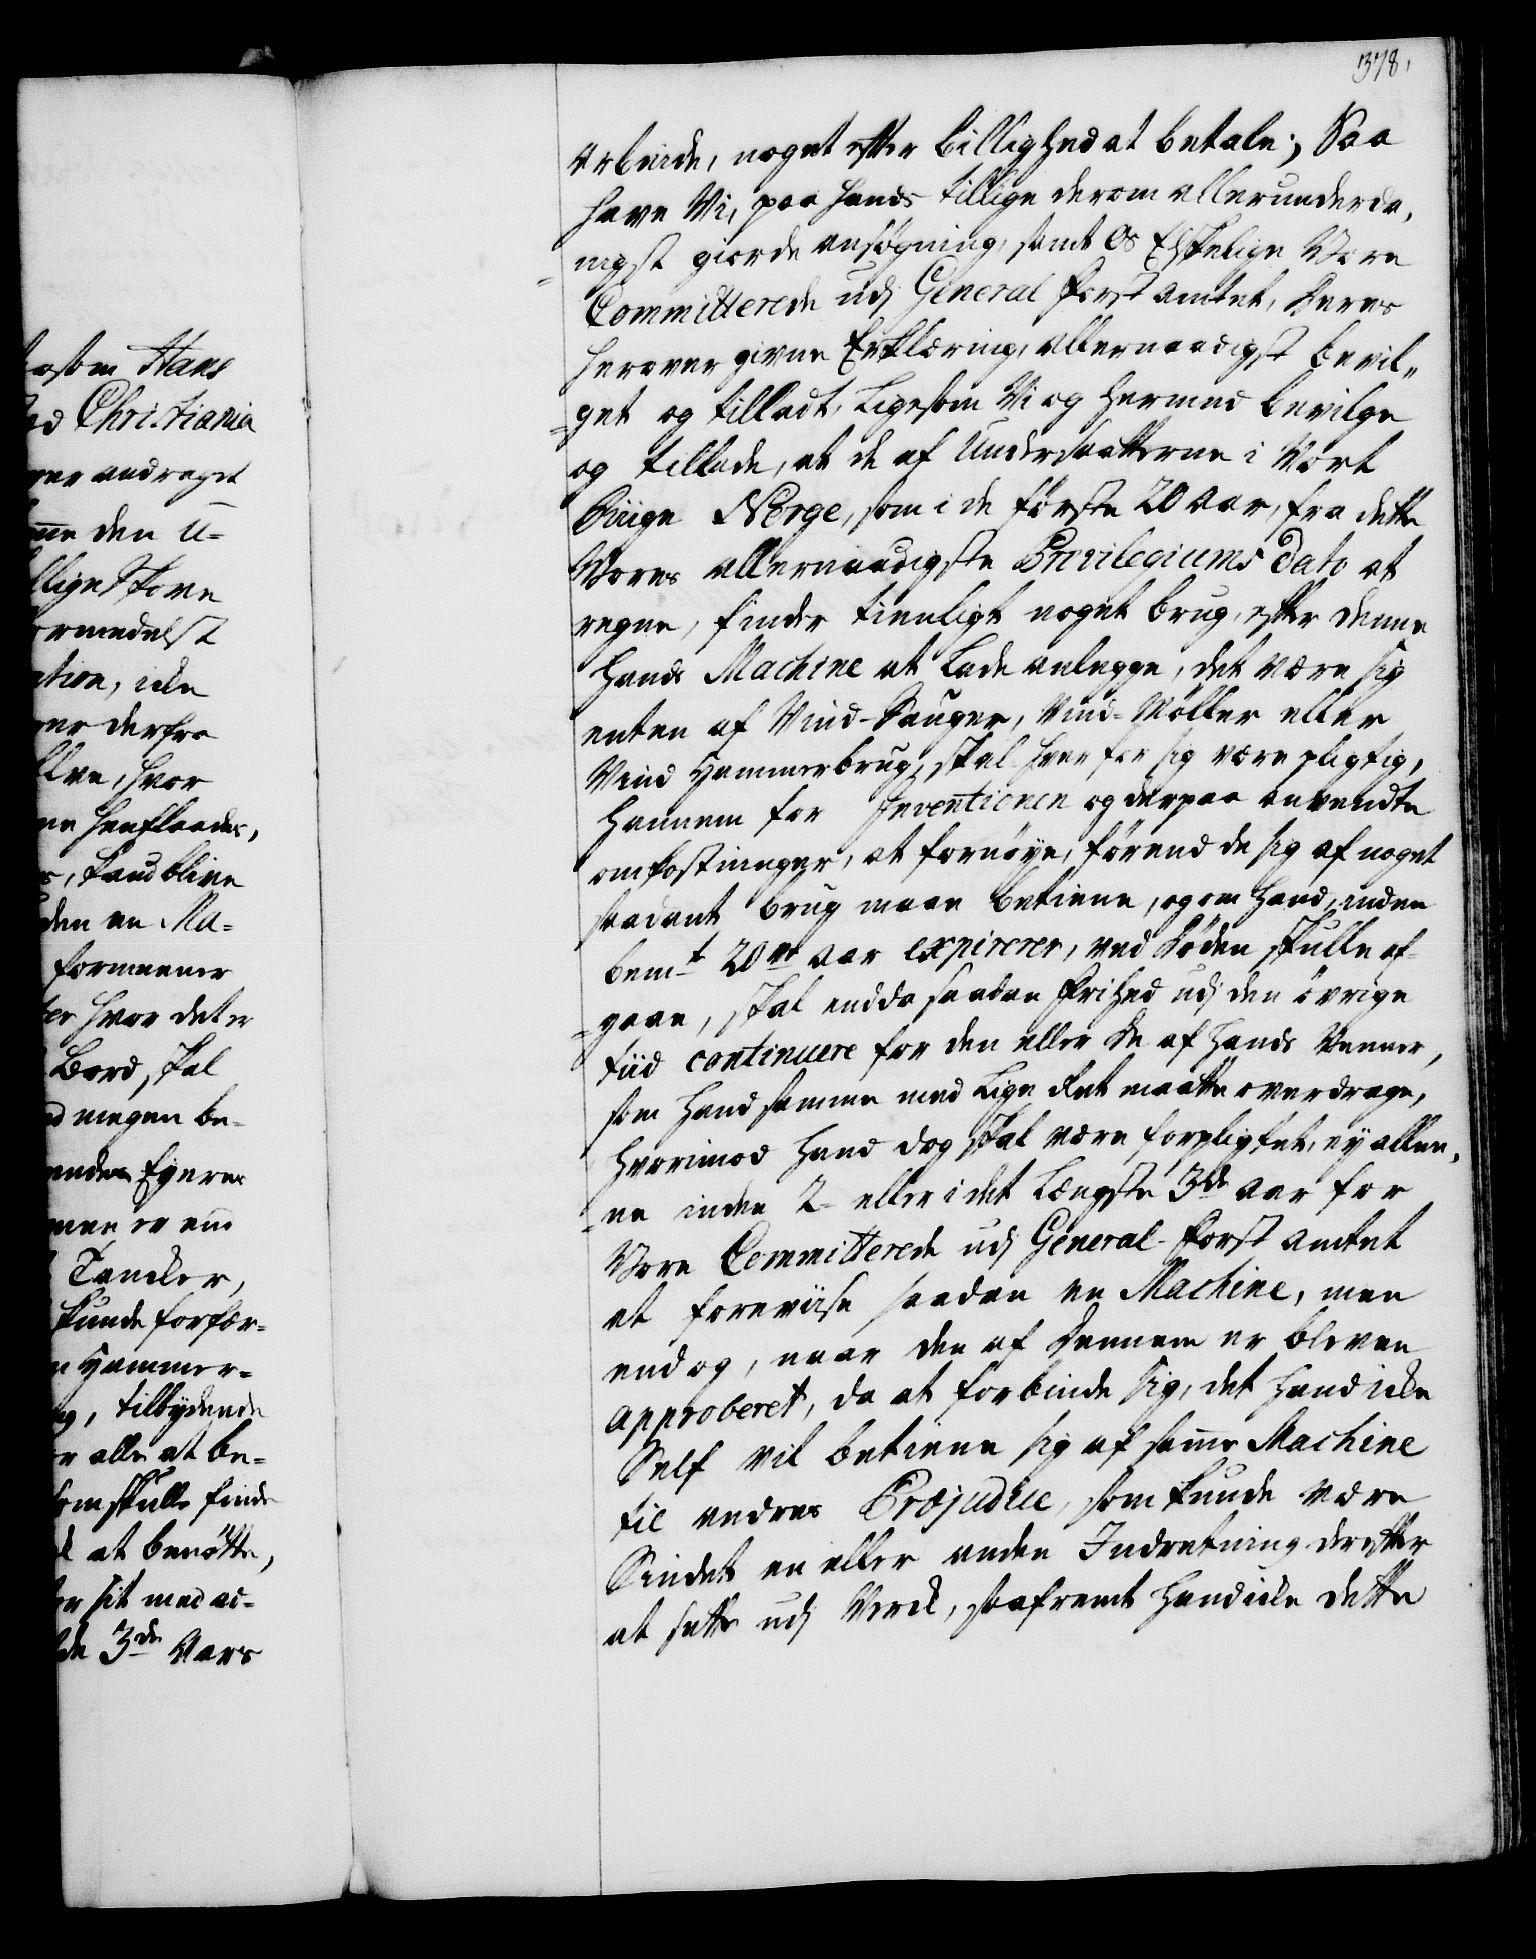 378.
Arbeide, noget efter billighed at betale; Saa
have Vi, paa hands tillige derom allerunderda,
nigst giorde ansøgning, samt Os Elskelige Vore
Committerede udj General Forst Amtet, deres
herover givne Erklæring, allernaadigst bevil„
get og tilladt, ligesom Vi og hermed bevilge
og tillade, at de af Undersaatterne i Vort
Riige Norge, som i de første 20 Aar, fra dette
Vores allernaadigste Privilegiums Dato at
regne, finder tienligt noget brug, efter denne
hands Machine at lade anlegge, det være sig
enten af Vind-Sauger, Vind-Møller eller
Vind Hammerbrug, skal hver for sig være pligtig,
hannem for Inventionen og derpaa anvendte
omkostninger, at fornøye, førend de sig af noget
saadant brug maae betiene, og om hand, inden
bemt 20ve Aar expirerer, ved Døden skulle af-
gaae, skal endda saadan Frihed udj den øvrige
tiid continuere for den eller de af hands Venner,
som hand samme med lige Ret maatte overdrage,
hvorimod hand dog skal være forpligtet, ey allee,
ne inden 2- eller i det længste 3de Aar for
Vore Committerede udj General-Forst Amtet
at foreviise saadan en Machine, men
endog, naar den af dennem er bleven
approberet, da at forbinde sig, det hand icke
Self vil betiene sig af samme Machine
til andres Præjudice, som kunde være
Sindet en eller anden Indretning derefter
at sette udj Verck, saafremt hand icke dette
asom Hans
ed Christiania
andraget
den U=
llige Skove
ormedelst
ation, icke
derfra
hvor
henflaades,
kand blive
den en Ma=
formeener
hvor det er
Bord, skal
megen be=
Eyeres
er end
Tancker,
kunde forfær=
Hammer=
tilbydende
alle at be=
som skulle finde
at benøtte,
sit med ad=
de 3de Aars